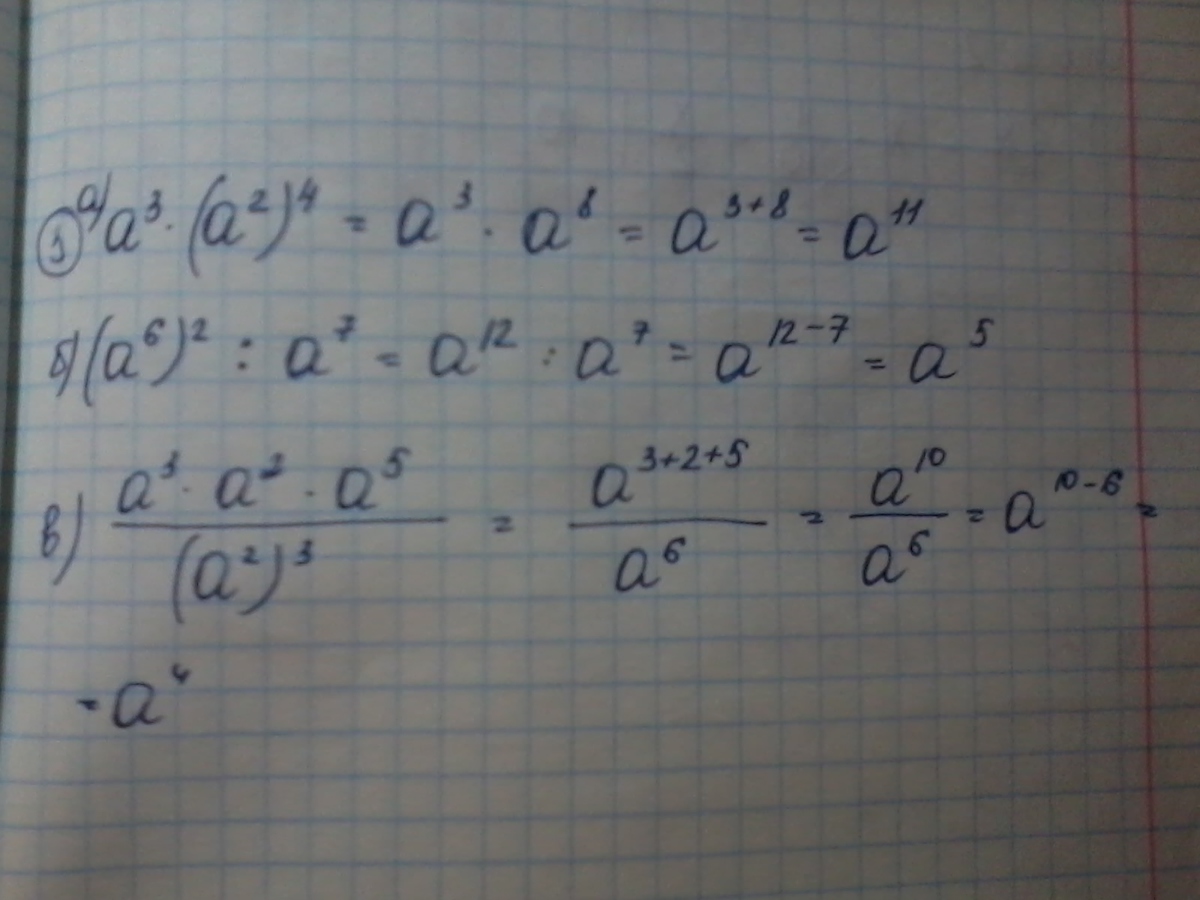 ③ а) a³ · (a²)⁴ = a³ · a⁸ = a³⁺⁸ = a¹¹
б) (a⁶)² : a⁷ = a¹² : a⁷ = a¹²⁻⁷ = a⁵
в) \frac{a³ · a² · a⁵}{(a²)³} = \frac{a³⁺²⁺⁵}{a⁶} = \frac{a¹⁰}{a⁶} = a¹⁰⁻⁶ =
= a⁴